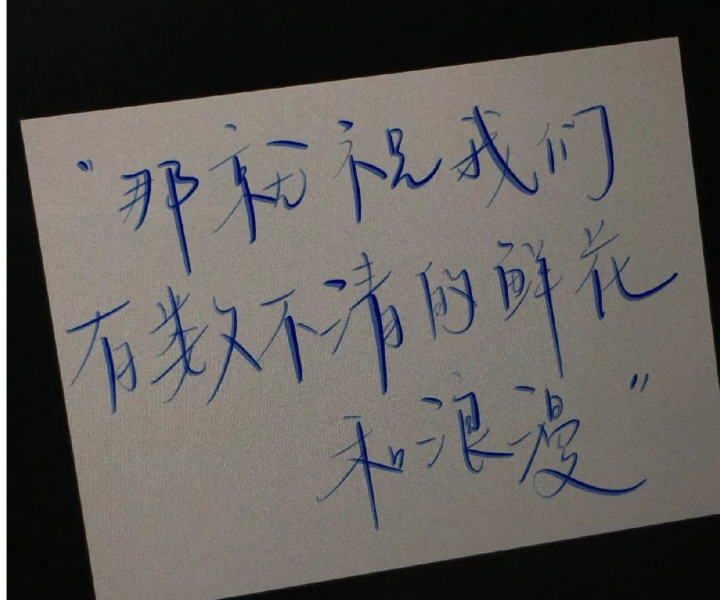 “那就祝我们
有数不清的鲜花
和浪漫”